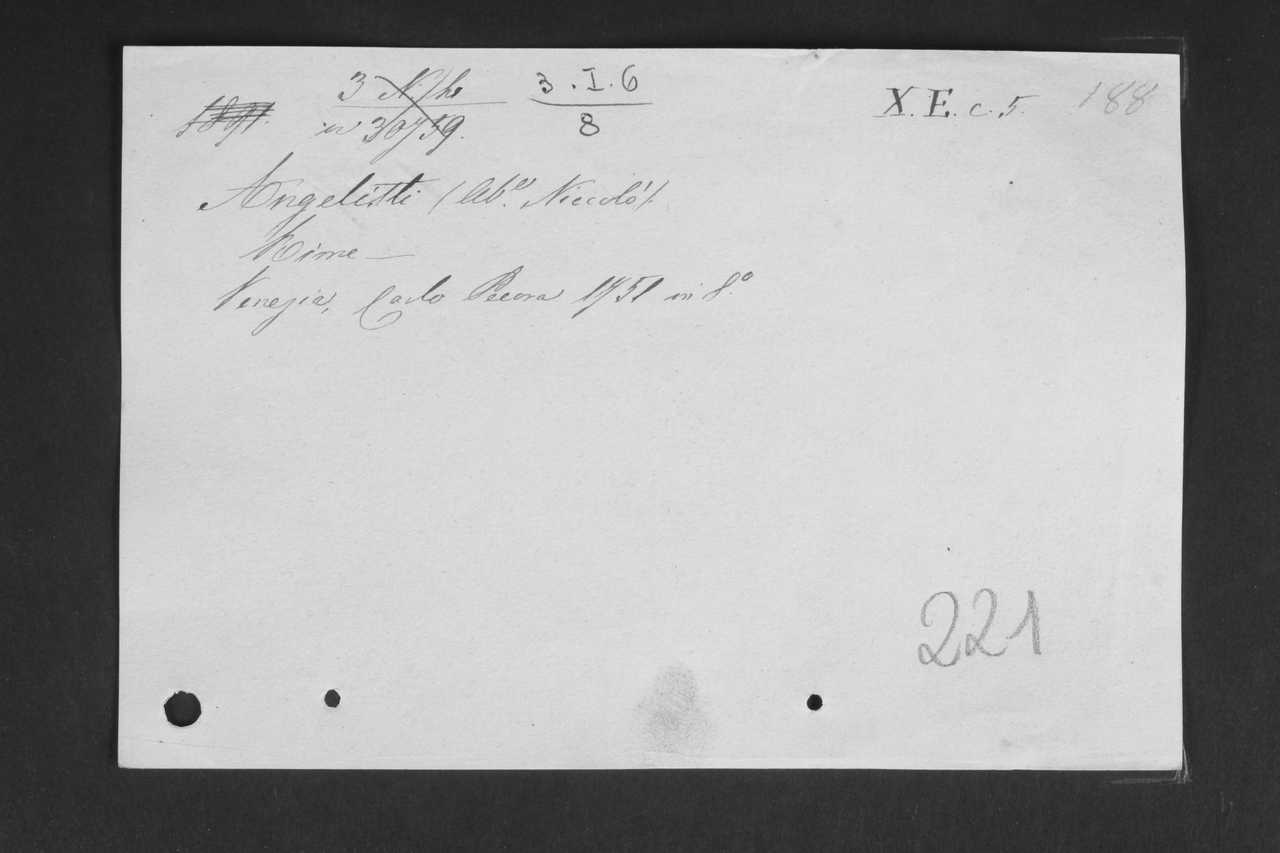 3 . I . 6
8
X. E. c. 5. 188
Angelitti (Ab.e Niccolò).
Rime —
Venezia, Carlo Pecora 1751 in 8.o
221